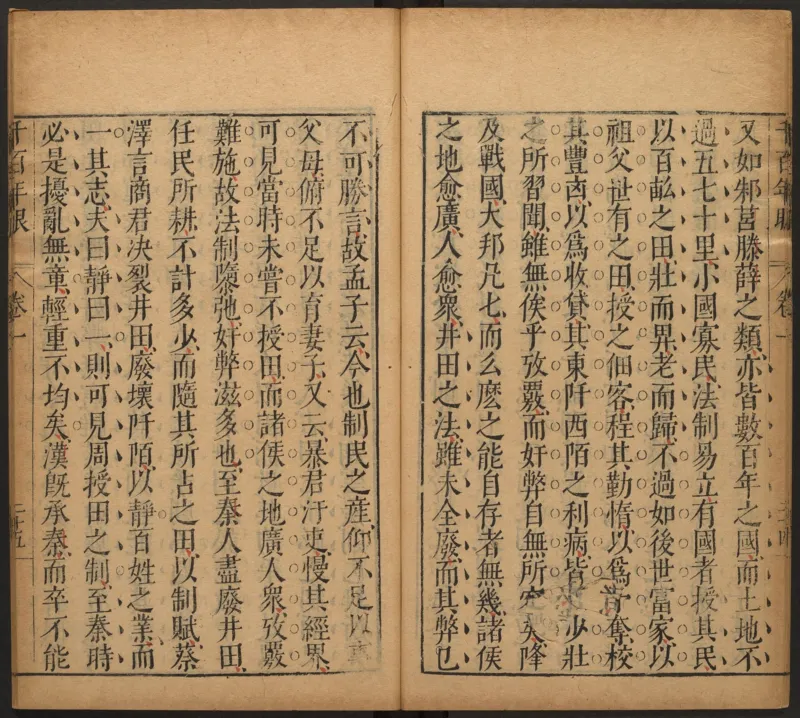 又如邾莒滕薛之類亦皆數百年之國而土地不
過五七十里小國寡民法制易立有國者授其民
以百畝之田壯而畀老而歸不過如後世富家以
祖父世有之田授之佃客程其勤惰以爲予奪校
其豐㐫以爲收貸其東阡西陌之利病皆少壯
之所習聞雖無俟乎攷覈而奸弊自無所容矣降
及戰國大邦凡七而么麽之能自存者無幾諸侯
之地愈廣人愈衆井田之法雖未全廢而其弊已
不可勝言故孟子云今也制民之產仰不足以事
父母俯不足以育妻子又云暴君汙吏慢其經界
可見當時未嘗不授田而諸侯之地廣人衆攷覈
難施故法制隳弛奸弊滋多也至秦人盡廢井田
任民所耕不計多少而隨其所占之田以制賦蔡
澤言商君決裂井田廢壞阡陌以靜百姓之業而
一其志夫曰靜曰一則可見周授田之制至秦時
必是擾亂無章輕重不均矣漢既承秦而卒不能
千百年眼 卷一 二十五